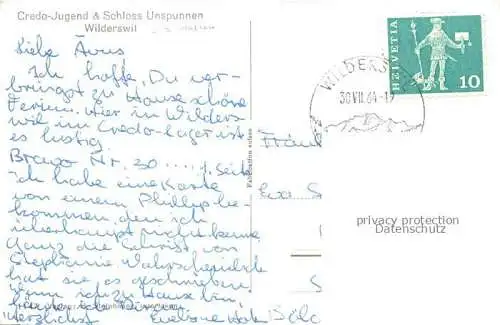 Credo-Jugend & Schloss Unspunnen
Wilderswil
HELVETIA
10
WILDERS
30.VII.64-17
Liebe
Ich hoffe, Du ver-
bringst zu Hause schöne
Ferien. Hier in Wilders
wil im Credo-lager ist
es lustig.
Bravo Nr. 30 .... 1. Seite
Ich habe eine Karte
von einem Phillip be-
kommen den ich
überhaupt nicht kenne
Ganz die Schrift von
Stephanie Wahrscheinlich
hat sie es geschrieben
Wenn ich zu Hause bin,
Herzlichst
Fräul
Eva S
S
privacy protection
Datenschutz